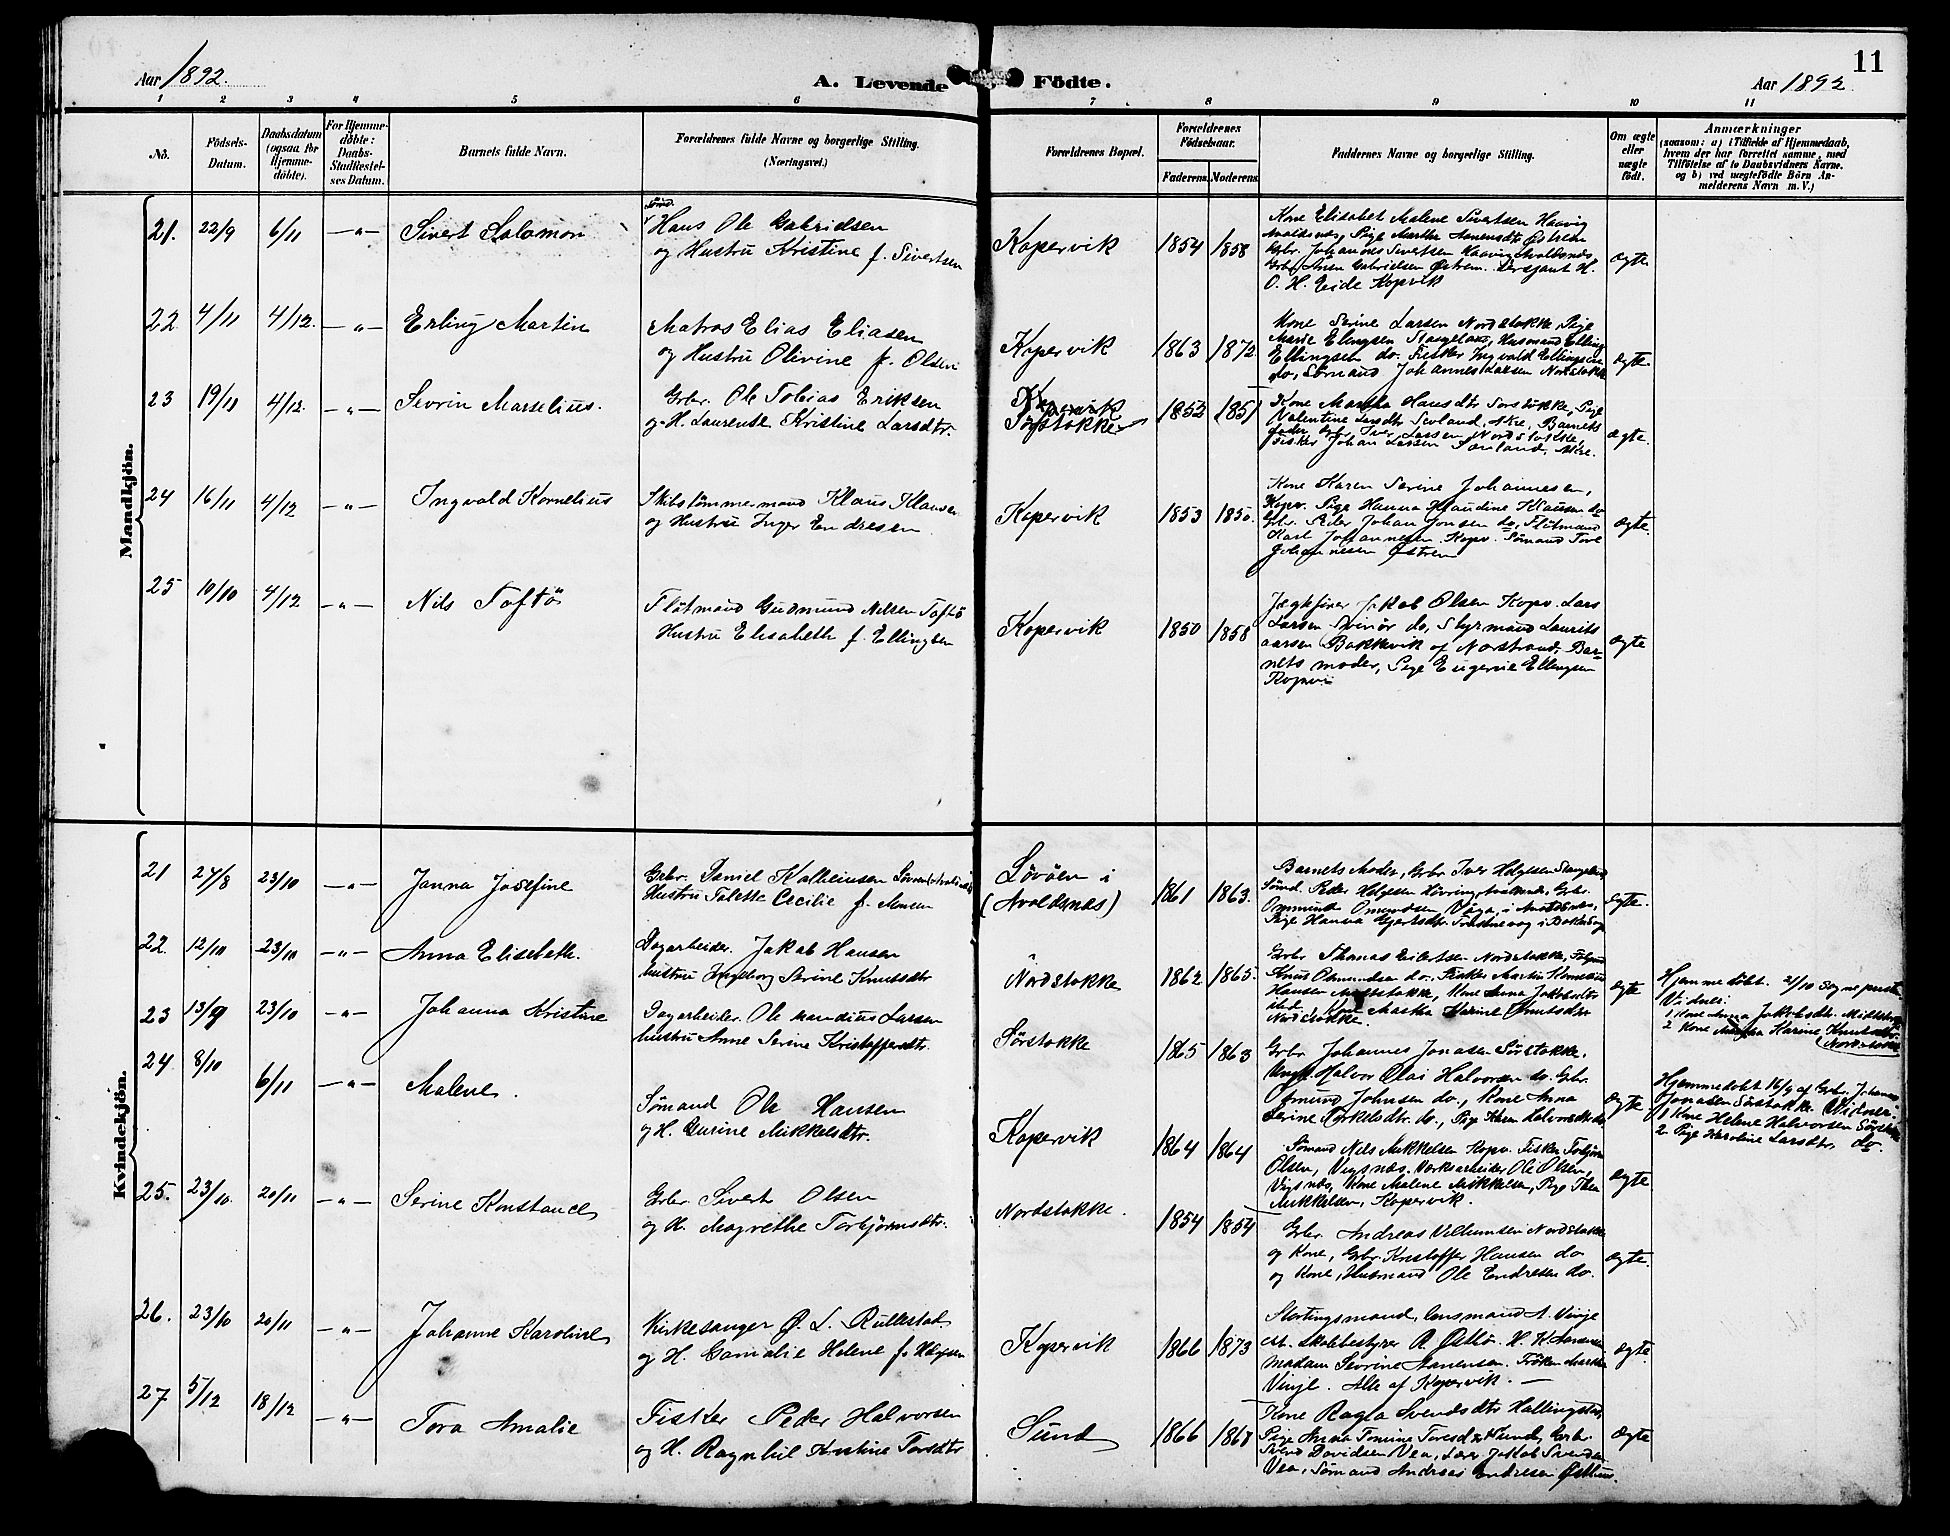 11
Aar 1892.
A. Levende Födte.
Aar 1892
1 2 3 4 5 6 7 8 9 10 11
No.
Födsels-
Datum.
Daabsdatum
(ogsaa for
Hjemme-
döbte).
For Hjemme-
döbte:
Daabs-
Stadfæstel-
ses Datum.
Barnets fulde Navn.
Forældrenes fulde Navne og borgerlige Stilling.
(Næringsvei.)
Forældrenes Bopæl.
Forældrenes
Födselsaar.
Faderens. Moderens.
Faddernes Navne og borgerlige Stilling.
Om ægte
eller
uægte
födt.
Anmærkninger
(saasom: a) i Tilfælde af Hjemmedaab,
hvem der har forrettet samme, med
Tilföielse af to Daabsvidners Navne.
og b) ved uægtefödte Börn An-
melderens Navn m. V.)
Mandkjön.
21. 22/9 6/11 —„— Sivert Salomon
Hans Ole Gabrielsen
og Hustru Kristine f. Sivertsen
Kopervik 1854 1858
Kone Elisabet Malene Sivertsen Haavig
Avaldsnæs, Pige Marthe Aanensdtr Østrem
Grbr. Johannes Sivertsen Haavig Avaldsnæs
Grbr. Anen Gabrielsen Østrem. Sersjant H.
O. H. Eide Kopvik
ægte
22 4/11 4/12. —„— Erling Martin
Matros Elias Eliasen
og Hustru Olivine f. Olsen
Kopervik 1863 1872
Kone Serine Larsen Nordstokke, Pige
Marie Elingsen Stangeland, Husmand Elling
Ellingsen do. Fisker Ingvald Ellingsen
do, Sømand Johannes Larsen Nordstokke
ægte.
23 19/11 4/12. —„— Sevrin Marselius.
Grbr. Ole Tobias Eriksen
og H. Laurentse Kristine Larsdtr.
Kopervik
Sørstokke 1853 1851
Kone Martha Hansdtr Sørstokke, Pige
Valentine Larsdtr Sevland, Akre, Barnets
fader, Grbr. Iver Larsen Nordstokke,
Fisker Johan Larsen Sevland, Akre.
ægte.
24 16/11 4/12 —„— Ingvald Kornelius
Skibstømmermand Klaus Klausen
og Hustru Inger Endresen
Kopervik 1853 1850.
Kone Karen Serine Johannesen,
Kopv. Pige Hanna Klaudine Klausen do
Grbr. Peder Johan Jonsen do, Flotmand
Karl Johannesen Kopv. Sømand Tore
Johannesen Østrem
ægte.
25 10/10 4/12 —„— Nils Toftö
Flotmand Gudmund Nilsen Toftö
Hustru Elisabeth f. Ellingsen
Kopervik 1850 1858
Jægtfører Jakob Olsen Kopv. Lars
Larsen Svinör do, Styrmand Laurits
aarsen Bakkevik af Norstrand, Bar-
nets moder, Pige Eugenie Ellingsen
Kopvi
ægte
Kvindekjön.
21 27/8 23/10 —„— Janna Josefine
Grbr. Daniel Kolbeinsen
Hustru Tolette Cecilie f. Monsen
Løvöen i
(Avaldsnæs) 1861 1863.
Barnets Moder, Grbr Iver Helgesen Stangeland
Sömd. Peder Helgesen Avaldsnæs, Grbr.
Ommund Omundsen Våga, i Avaldsnæs,
Pige Hanna Gjertsdtr.
ægte.
22 12/10 23/10 —„— Anna Elisabeth.
Dagarbeider. Jakob Hansen
hustru Ingeborg Serine Knutsdtr
Nordstokke 1862 1865.
Grbr. Thomas Eilertsen Nordstokke,
Knut Omundsen do. Fisker Martin Kornelius
Hansen Midtstokke, Kone Anna Jakobsdtr
Martha Karine Knutsdtr
Nordstokke.
ægte
Hjemmedøbt. 21/10 Sognepresten
Vidner:
1 Kone Anna Jakobsdtr. Midtstokke
2 Kone Martha Karine Knutsdtr
(Nordstokke
23 13/9 23/10 —„— Johanna Kristine
Dagarbeider. Ole Mandius Larsen
hustru Anne Serine Kristoffersdtr.
Sørstokke 1865 1863
Grbr Johannes Jonasen Sørstokke.
Ungk. Halvor Olai Halvorsen do. Grbr.
Osmund Johnsen do., Kone Anna
Serine Torkelsdtr. do., Pige Karen Halvorsdtr do.
ægte.
Hjemmedøbt 16/9 af Grbr. Johannes
Jonasen Sørstokke. Vidner:
1 Kone Helene Halvorsen Sørstokke
2. Pige Karoline Larsdtr, do.
24 8/10 6/11 —„— Malene.
Sømand Ole Hansen
og H. Gurine Mikkelsdtr.
Kopervik 1864 1864
Sømand Nils Mikkelsen Kopv. Fisker Torbjörn
Olsen, Vigsnæs. Værksarbeider Ole Olsen,
Vigsnæs, Kone Malene Mikkelsen, Pige Thea
Mikkelsen, Kopervik.
ægte
25. 23/10. 20/11 —„— Serine Konstance
Grbr Sivert Olsen
og H. Magrethe Torbjørnsdtr.
Nordstokke. 1854 1854
Grbr. Andreas Villumsen Nordstokke
og Kone, Grbr. Kristoffer Hansen do
og Kone, Husmand Ole Endresen do.
ægte.
26. 23/10 20/11 —„— Johanne Karoline
Kirkesanger Ø. L. Rullestad
og H. Gamalie Helene f. Helgesen
Kopervik 1866 1873
Stortingsmand, lensmand A. Vinje
st. skolebestyrer R. Østbø. H. K. Aanensen
Madam Sevrine Aanensen. Frøken Marthe
Vinje. Alle af Kopervik. —
ægte.
27 5/12 18/12 —„— Tora Amalie
Fisker Peder Halvorsen
og H. Ragnhil Antine Torsdtr
Sund 1866 1868
Kone Ragla Svendsdtr Hallingstad,
Pige Anna Tomine Toresdtr Sund, Grbr.
Svend Davidsen Vea, Lærer Jakob Svendsen
Vea, Sømand Andreas Endresen Østhus.
ægte